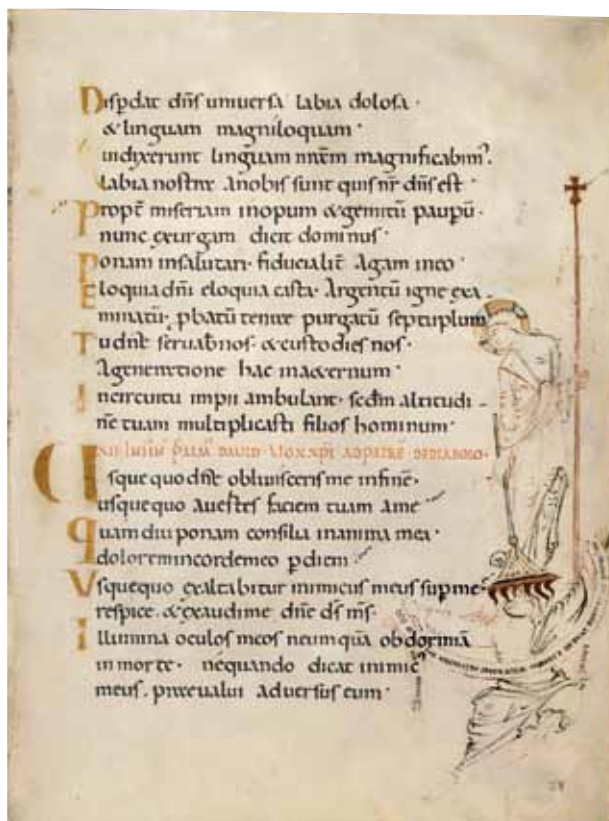 Dispdat dn̄s universa labia dolosa ·
& linguam magniloquam ·
ui dixerunt linguam nr̄am magnificabim᾽.
labia nostra a nobis sunt quis nr̄ dn̄s est ·
Propt̄ miseriam inopum & gemitū paupū ·
nunc exurgam dicit dominus ·
Ponam insalutari · fiducialit̄ agam in eo ·
Eloquia dn̄i eloquia casta · Argentū igne exa-
minatū, pbatū terrae purgatū septuplum
Tu dn̄e servab nos · & custodies nos ·
A generatione hac in aeternum ·
In circuitu impii ambulant · scdm altitudi-
nē tuam multiplicasti filios hominum ·
PSALM DAVID · VOX XPI AD PATRĒ DE DIABOLO ·
Usque quo dn̄e oblivisceris me in finē ·
usque quo avertes faciem tuam a me
quam diu ponam consilia in anima mea ·
dolorem in corde meo p diem
Usquequo exaltabitur inimicus meus sup me ·
respice · & exaudi me dn̄e ds̄ ms̄ ·
Illumina oculos meos ne umquā obdormiā
in morte · nequando dicat inimic᾽
meus · praevalui adversus eum ·